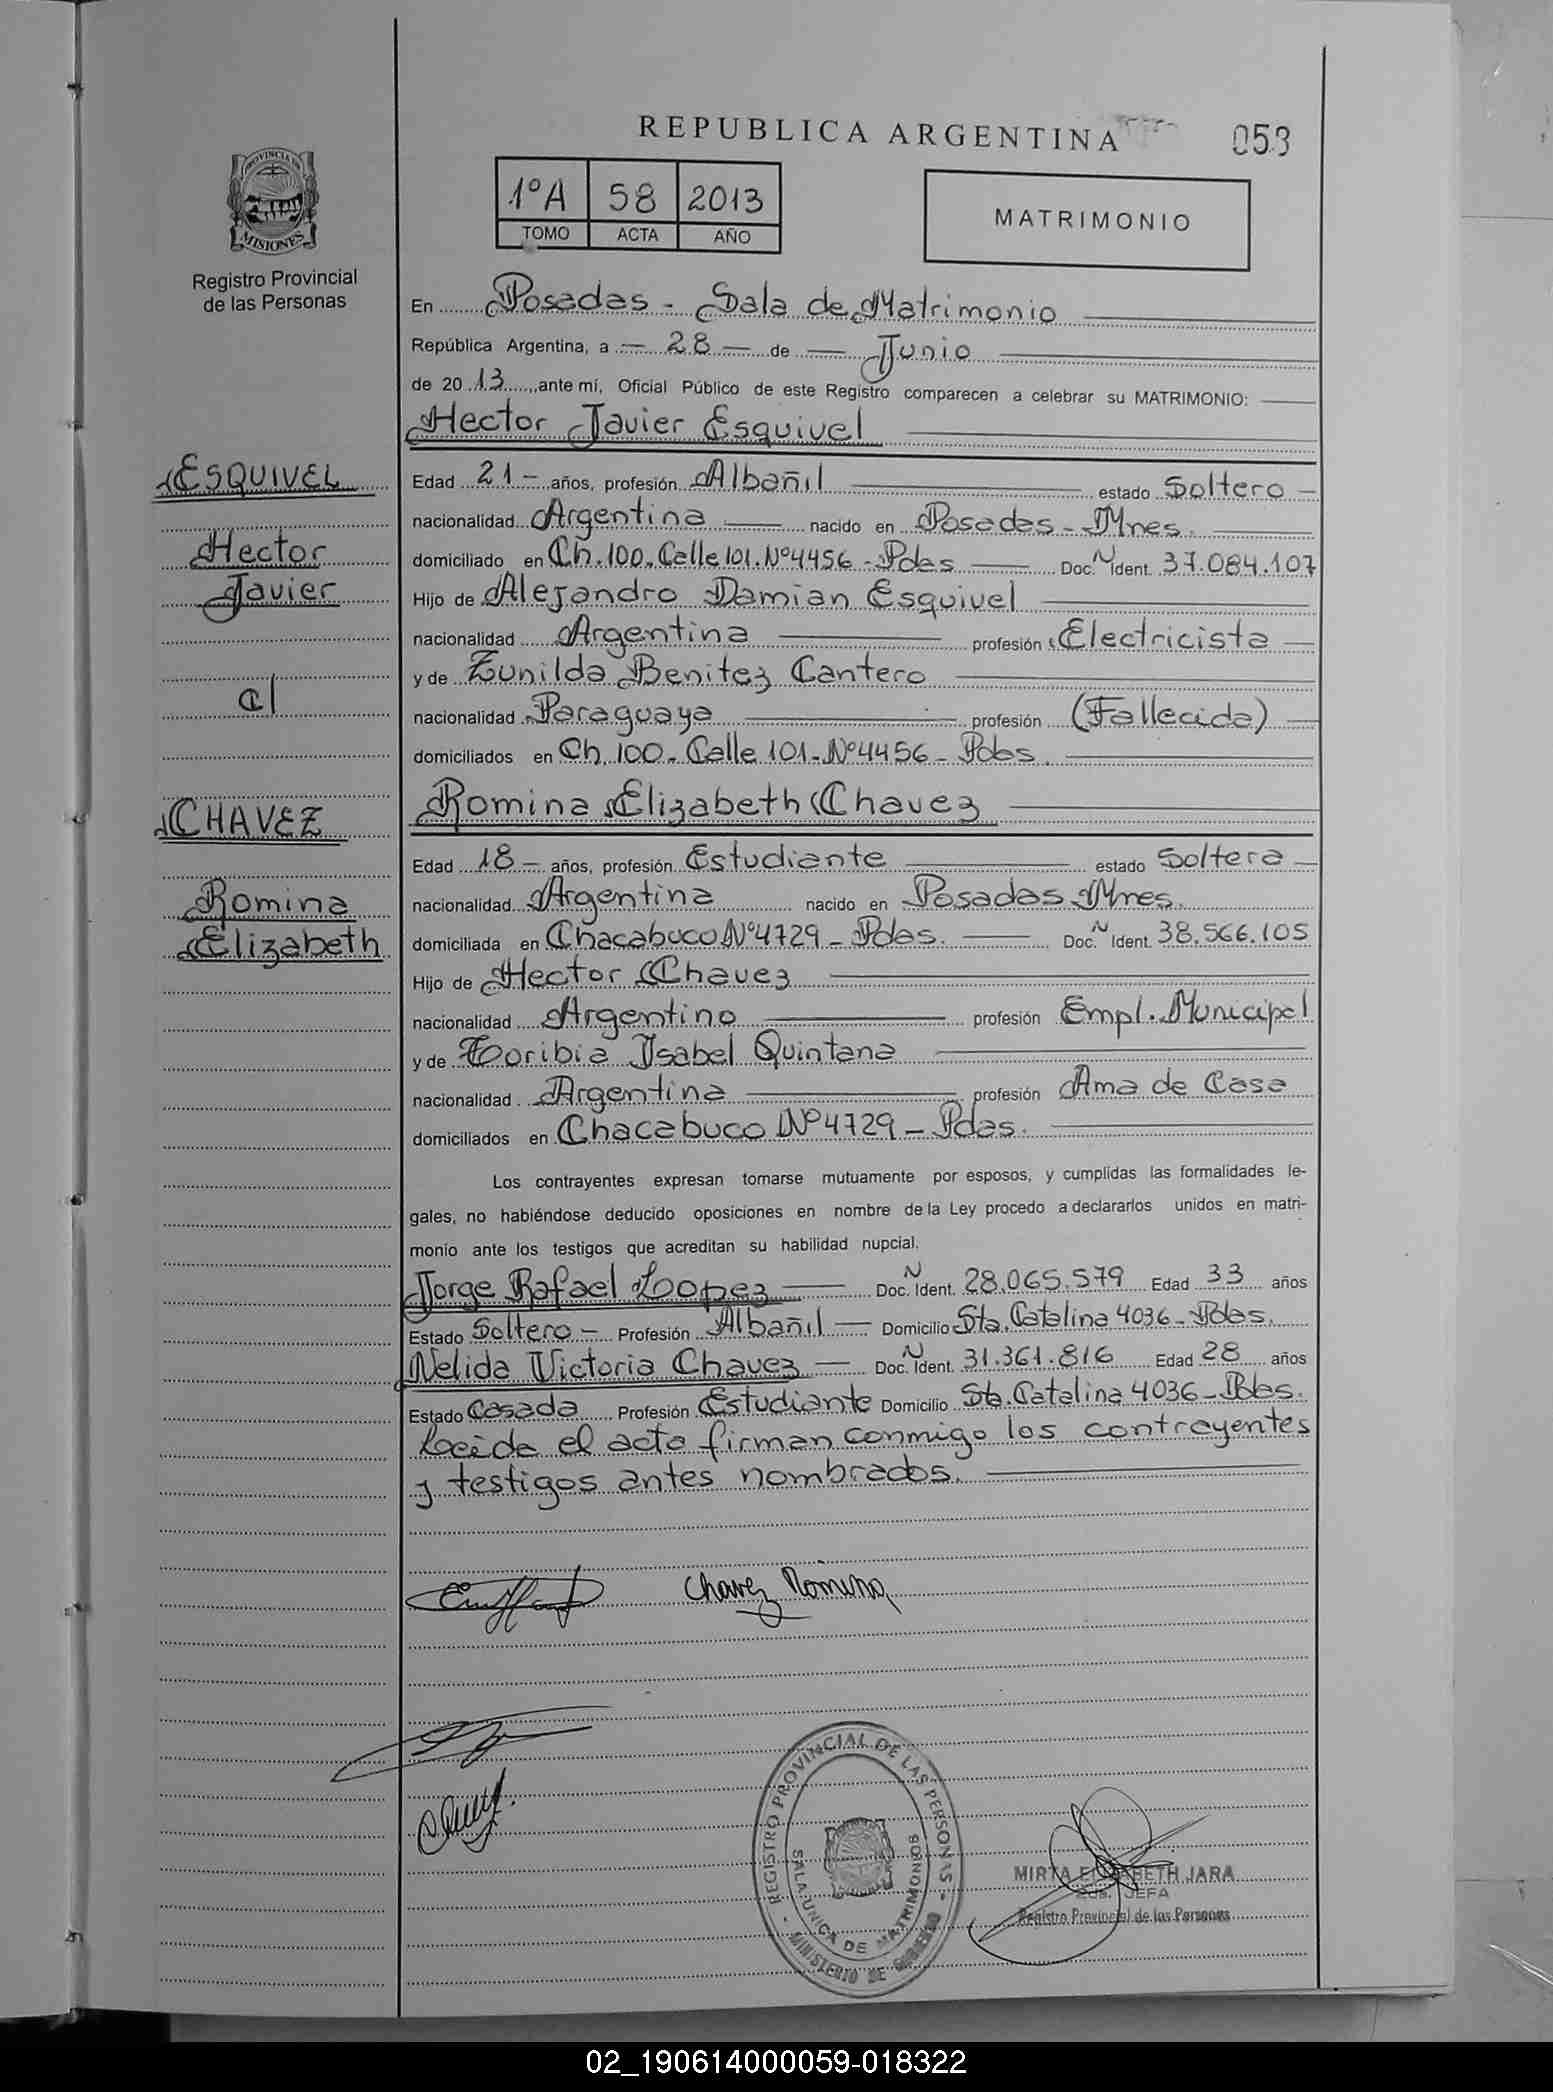 REPUBLICA ARGENTINA
053
1ºA 58 2013
TOMO ACTA AÑO
MATRIMONIO
PROVINCIA DE
MISIONES
Registro Provincial
de las Personas
En Posadas - Sala de Matrimonio
República Argentina, a - 28 - de - Junio
de 20 13 ante mí, Oficial Público de este Registro comparecen a celebrar su MATRIMONIO:
Hector Javier Esquivel
ESQUIVEL
Hector
Javier
c/
CHAVEZ
Romina
Elizabeth
Edad 21 - años, profesión Albañil estado Soltero -
nacionalidad Argentina nacido en Posadas - Mnes.
domiciliado en Ch. 100. Calle 101. Nº4456 - Pdas Doc. N Ident. 37.084.107
Hijo de Alejandro Damian Esquivel
nacionalidad Argentina profesión Electricista
y de Zunilda Benitez Cantero
nacionalidad Paraguaya profesión (Fallecida)
domiciliados en Ch. 100. Calle 101 - Nº4456 - Pdas.
Romina Elizabeth Chavez
Edad 18 - años, profesión Estudiante estado Soltera
nacionalidad Argentina nacido en Posadas Mnes.
domiciliada en Chacabuco Nº4729 - Pdas. Doc. N Ident. 38.566.105
Hijo de Hector Chavez
nacionalidad Argentino profesión Empl. Municipal
y de Toribia Isabel Quintana
nacionalidad Argentina profesión Ama de Casa
domiciliados en Chacabuco Nº4729 - Pdas.
Los contrayentes expresan tomarse mutuamente por esposos, y cumplidas las formalidades le-
gales, no habiéndose deducido oposiciones en nombre de la Ley procedo a declararlos unidos en matri-
monio ante los testigos que acreditan su habilidad nupcial.
Jorge Rafael Lopez Doc. N Ident. 28.065.579 Edad 33 años
Estado Soltero - Profesión Albañil Domicilio Sta. Catalina 4036 - Pdas.
Nelida Victoria Chavez Doc. N Ident. 31.361.816 Edad 28 años
Estado Casada Profesión Estudiante Domicilio Sta. Catalina 4036 - Pdas.
Leída el acta firman conmigo los contrayentes
y testigos antes nombrados.
Chavez Romina
REGISTRO PROVINCIAL DE LAS PERSONAS - MINISTERIO DE GOBIERNO
SALA UNICA DE MATRIMONIOS
MIRTA ELIZABETH JARA
JEFA
Registro Provincial de las Personas
02_190614000059-018322